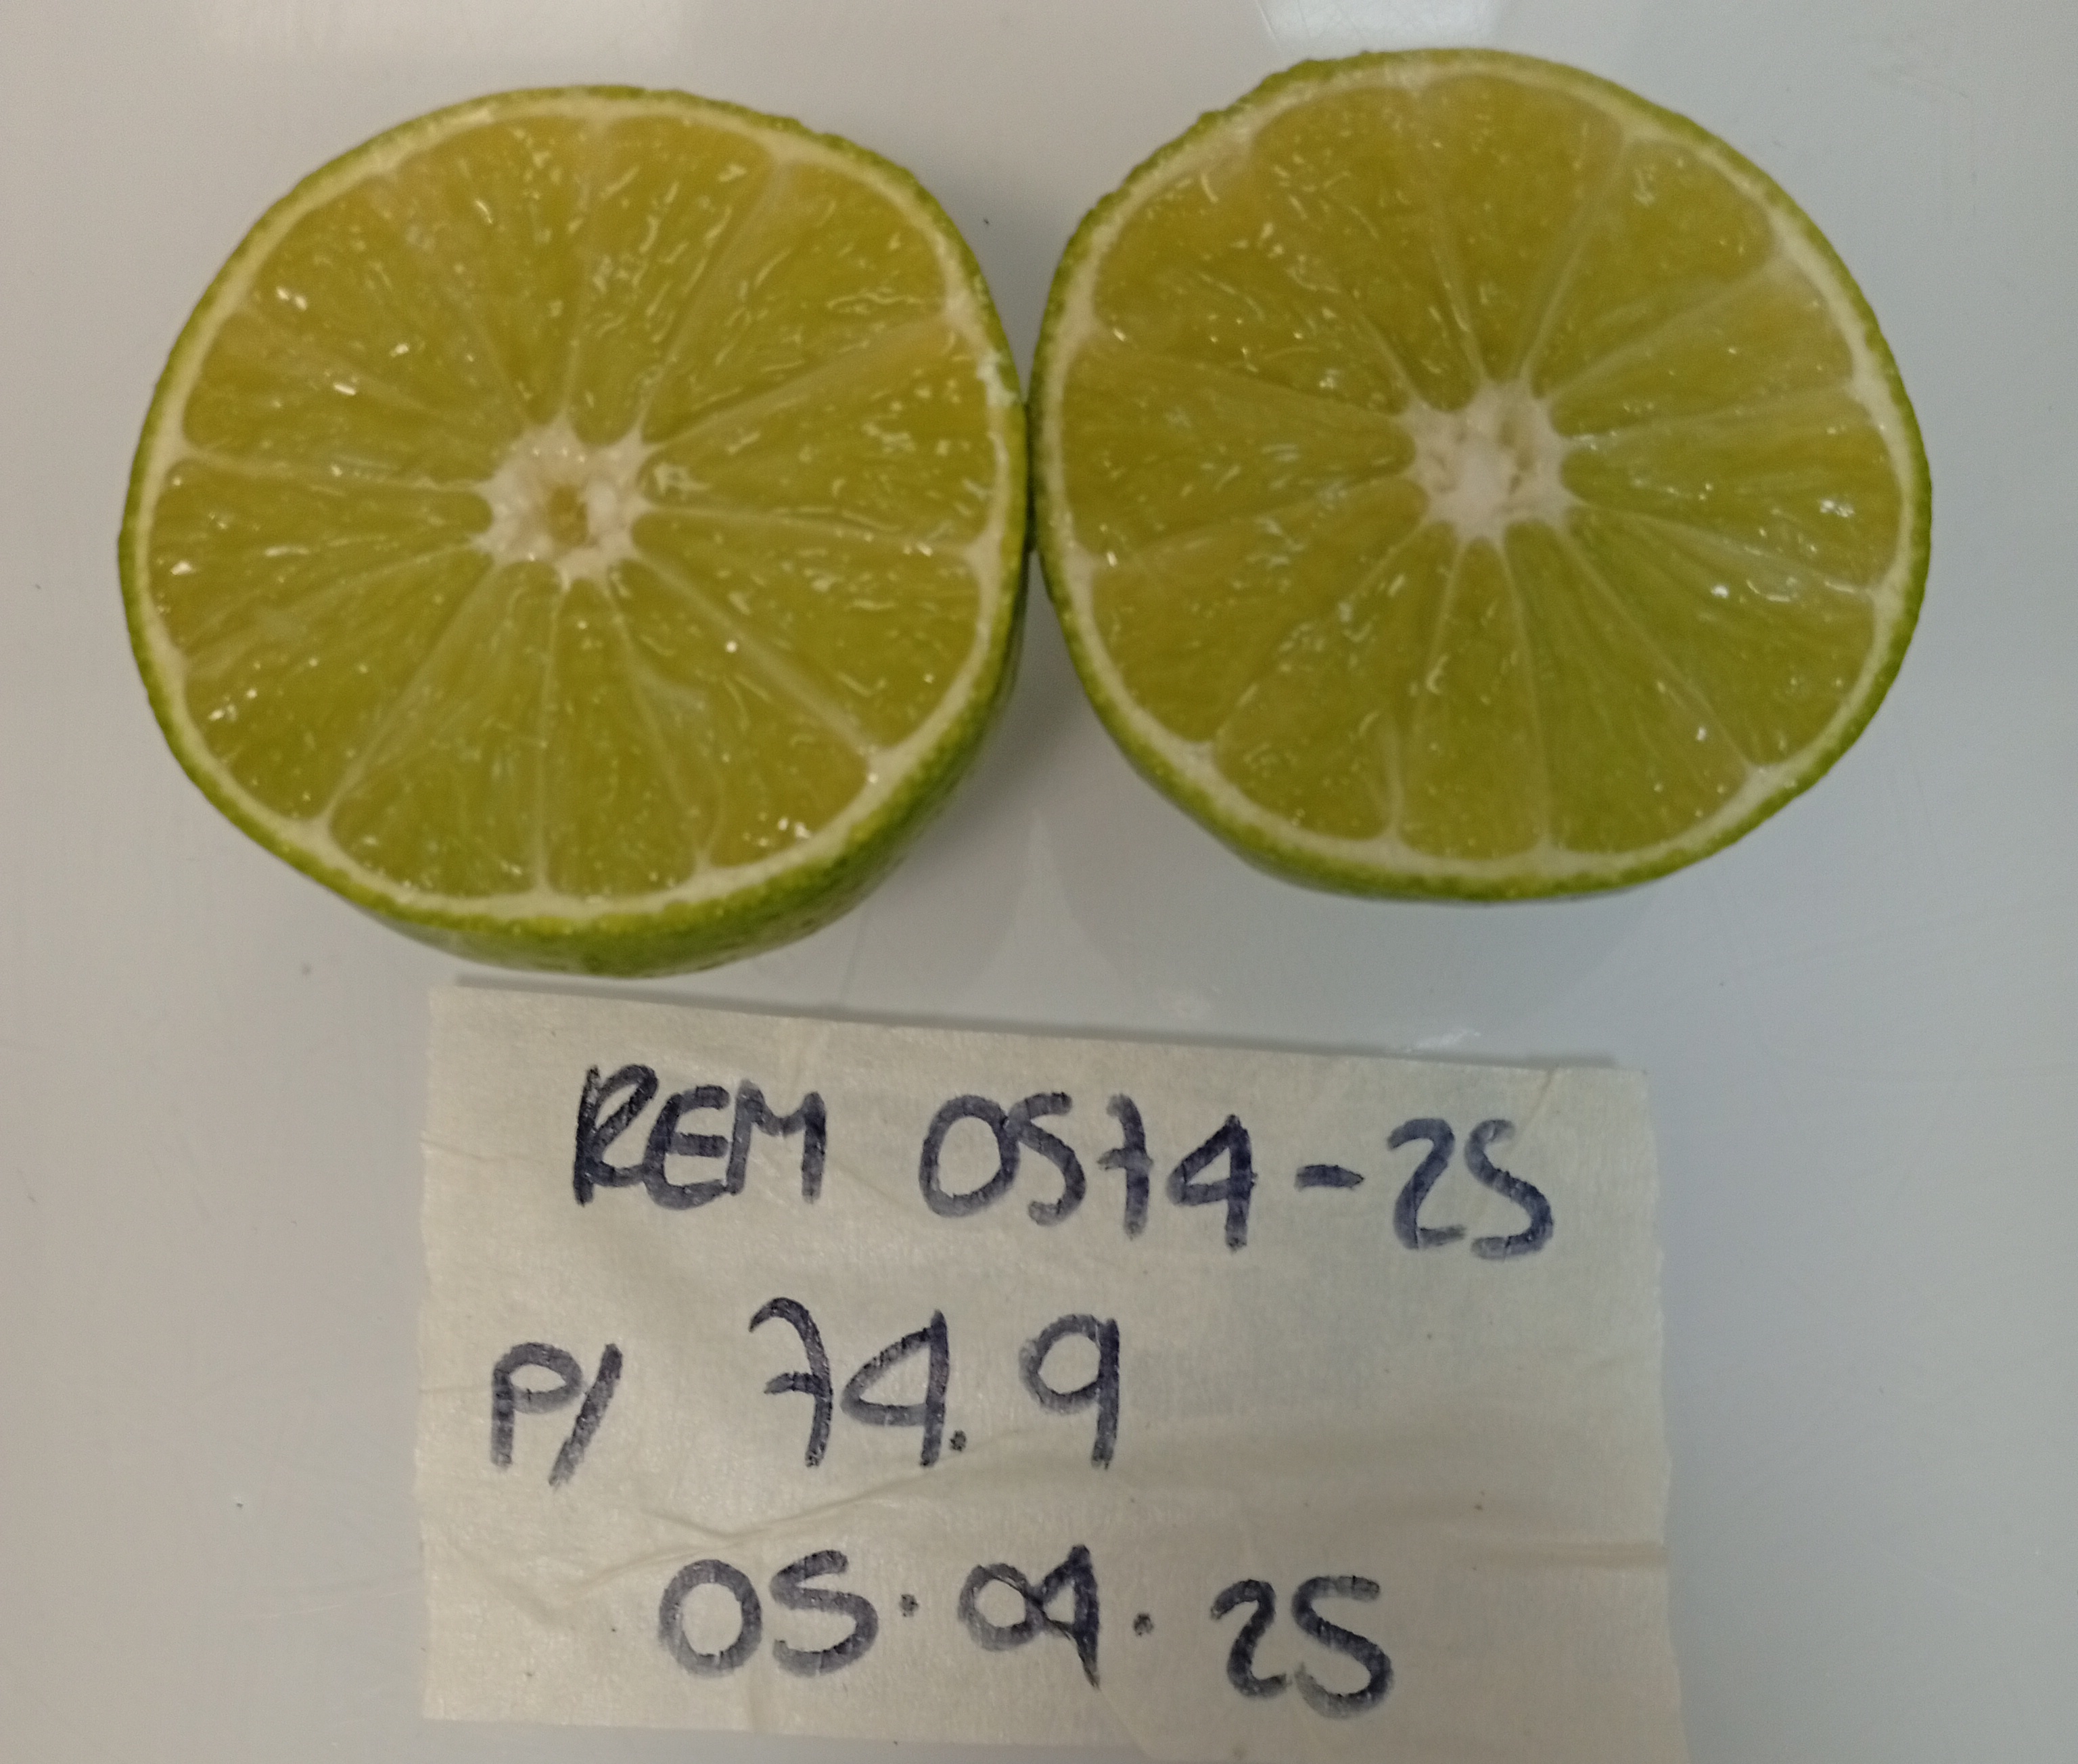 REM 0574-25
P/ 74.9
05.04.25